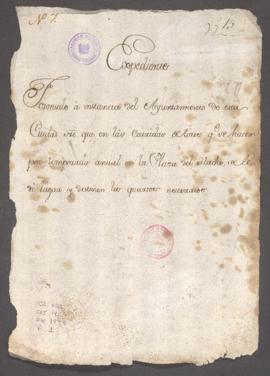 Nº 7.
Expediente
Formado á instancia del Ayuntamiento de esta
Ciudad sre que en las Corridas de toros qe se hacen
por temporada anual en la Plaza del Acho, se le
de lugar y destinen los quartos necesarios